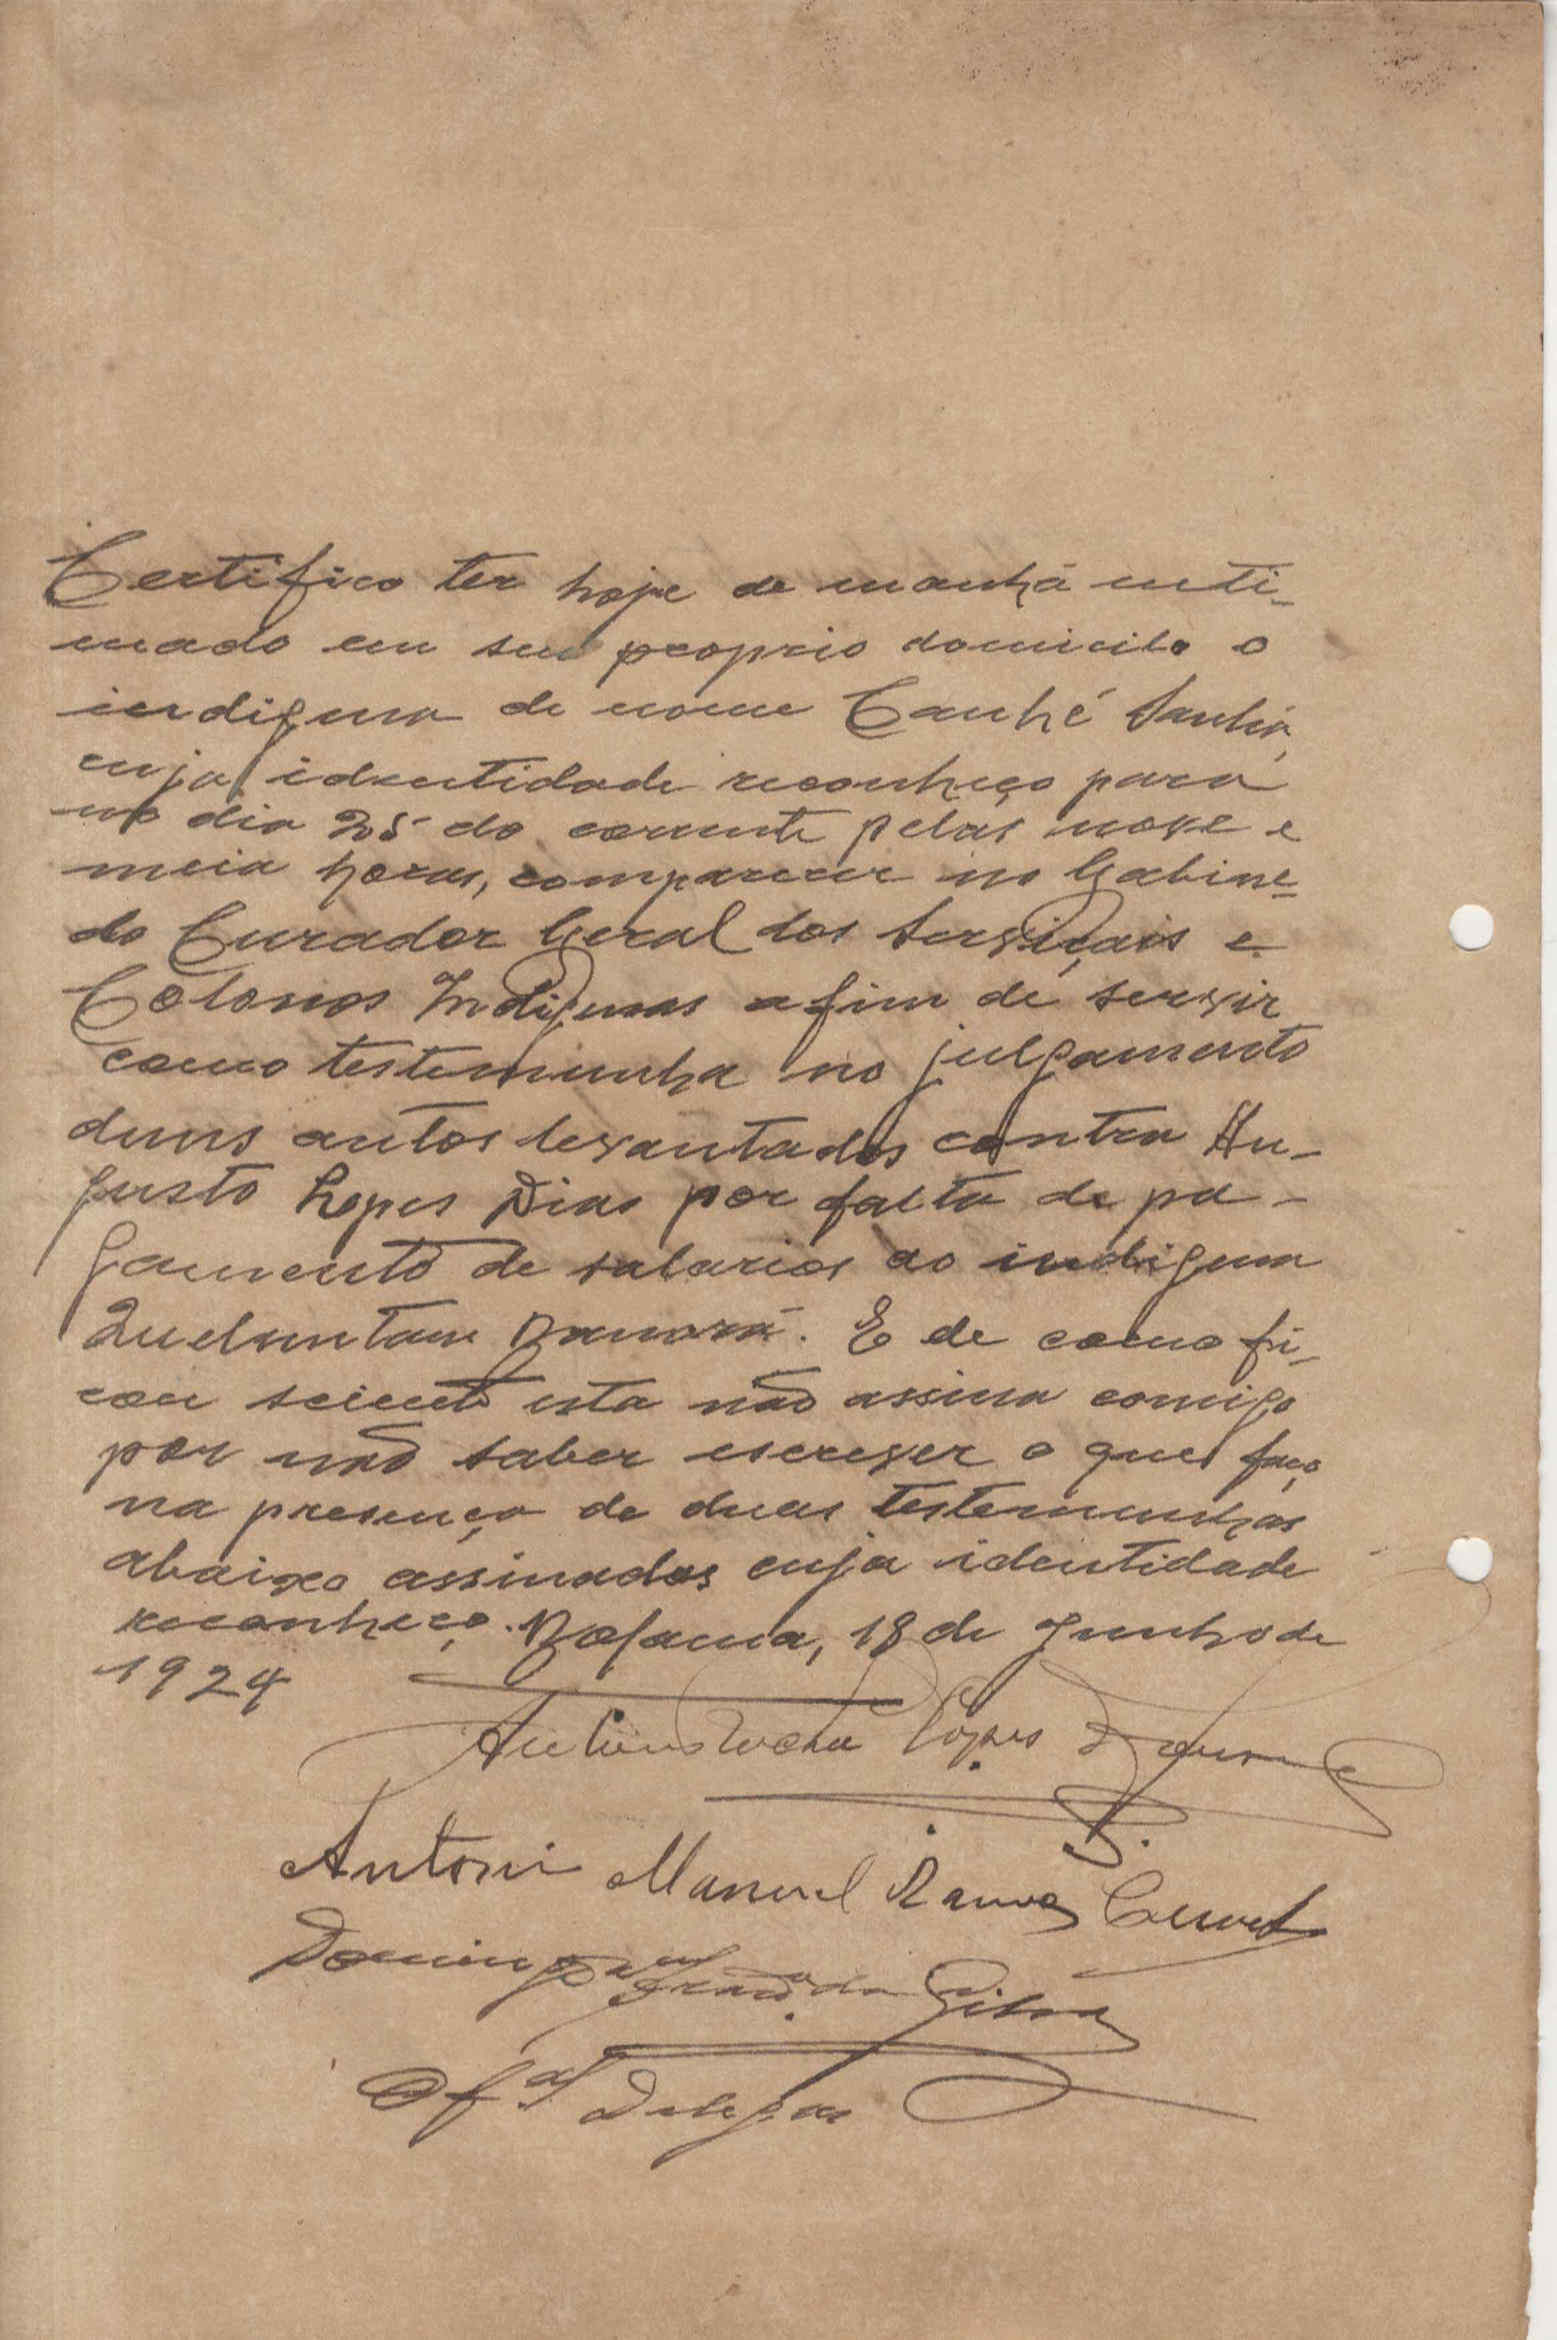 Certifico ter hoje de manhã inti-
mado em seu proprio domicilo o
indigena de nome Canhé Sanhá,
cuja identidade reconheço para
no dia 25 do corrente pelas nove e
meia horas, comparecer no Gabine-
do Curador Geral dos Serviçais e
Colonos Indigenas afim de servir
como testemunha no julgamento
duns autos levantados contra Au-
gusto Lopes Dias por falta de pa-
gamento de salarios ao indigena
E de como fi-
cou sciente esta não assina comigo
por não saber escrever o que faço
na presença de duas testemunhas
abaixo assinadas cuja identidade
reconheço. Bolama, 18 de Junho de
1924
Lopes
Antoni Manuel Ramos
Domingos da Silva
Of.al